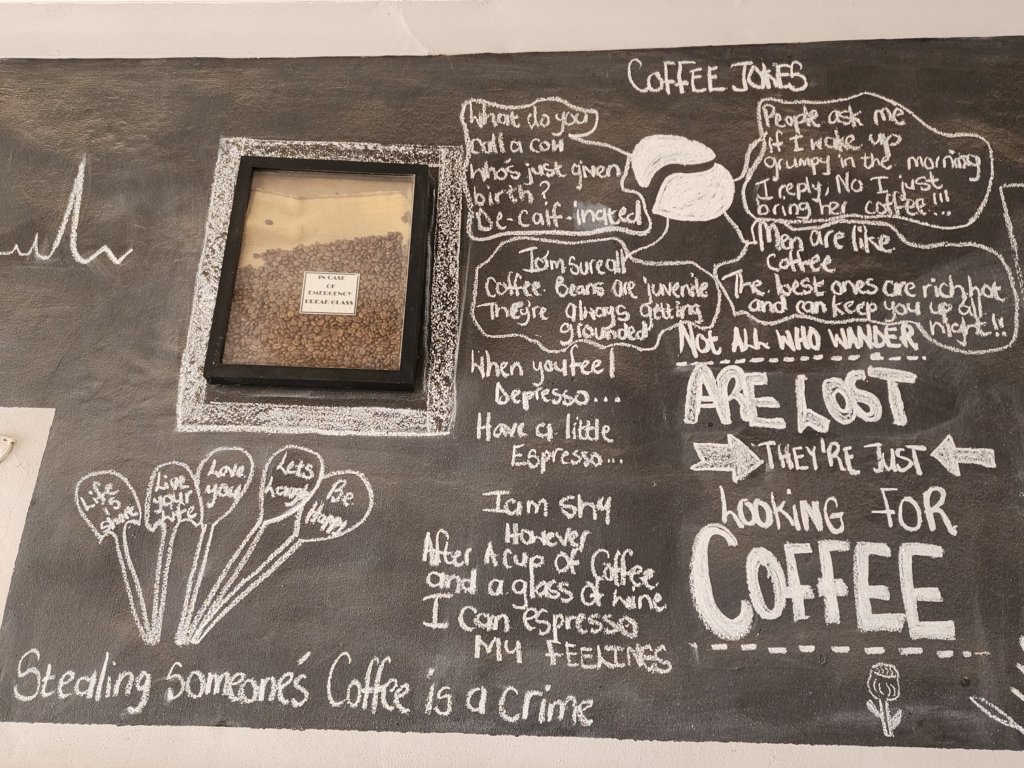 COFFEE JOKES
What do you
call a cow
who's just given
birth?
De-Calf-inated
People ask me
if I wake up
grumpy in the morning
I reply; No I just
bring her coffee!!!
I am sure all
Coffee Beans are juvenile
They're always getting
grounded
Men are like
coffee
The best ones are rich, hot
and can keep you up all
night!!
IN CASE
OF
EMERGENCY
BREAK GLASS
When you feel
Depresso...
Have a little
Espresso...
NOT ALL WHO WANDER
ARE LOST
THEY'RE JUST
LOOKING FOR
COFFEE
I am shy
However
After A cup of Coffee
and a glass of wine
I can espresso
MY FEELINGS
Life
is
Live
your
Love
you
Lets
Be
Happy
Stealing someone's Coffee is a crime